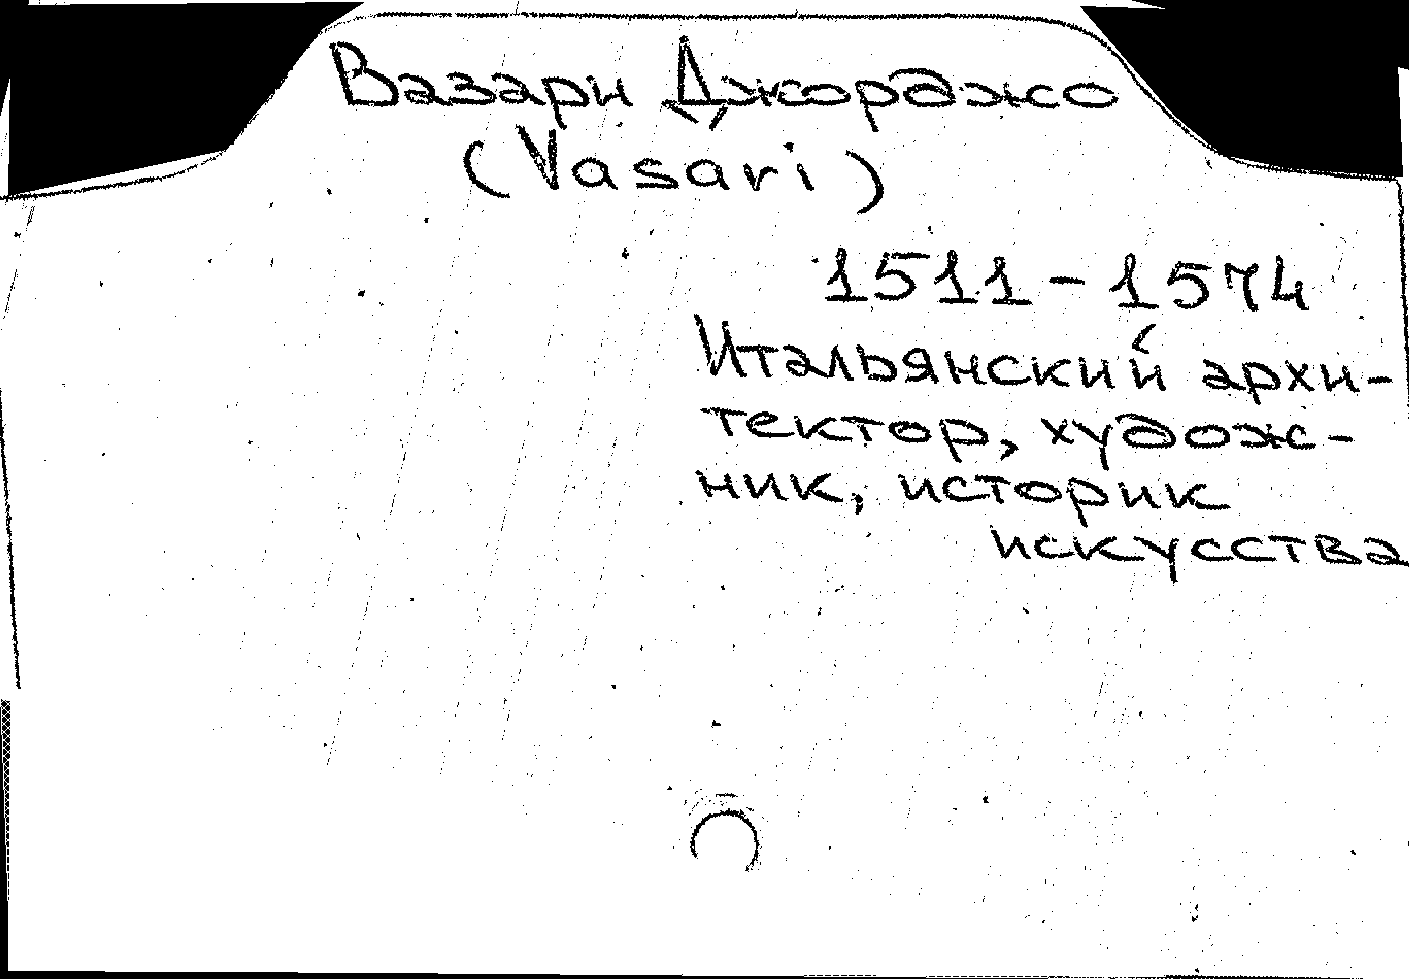 Вазари Джорджо
(Vasari)
1511-1574
Итальянский архи-
тектор, худож-
ник, историк
искусства